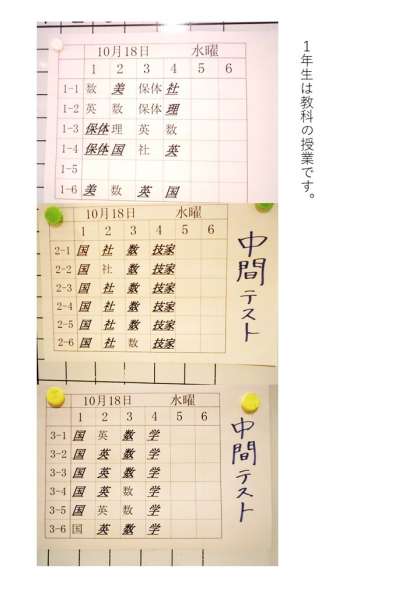 1年生は教科の授業です。
10月18日 水曜
1 2 3 4 5 6
1-1 数 美 保体 社
1-2 英 数 保体 理
1-3 保体 理 英 数
1-4 保体 国 社 英
1-5
1-6 美 数 英 国
10月18日 水曜
1 2 3 4 5 6
2-1 国 社 数 技家
2-2 国 社 数 技家
2-3 国 社 数 技家
2-4 国 社 数 技家
2-5 国 社 数 技家
2-6 国 社 数 技家
中間テスト
10月18日 水曜
1 2 3 4 5 6
3-1 国 英 数 学
3-2 国 英 数 学
3-3 国 英 数 学
3-4 国 英 数 学
3-5 国 英 数 学
3-6 国 英 数 学
中間テスト